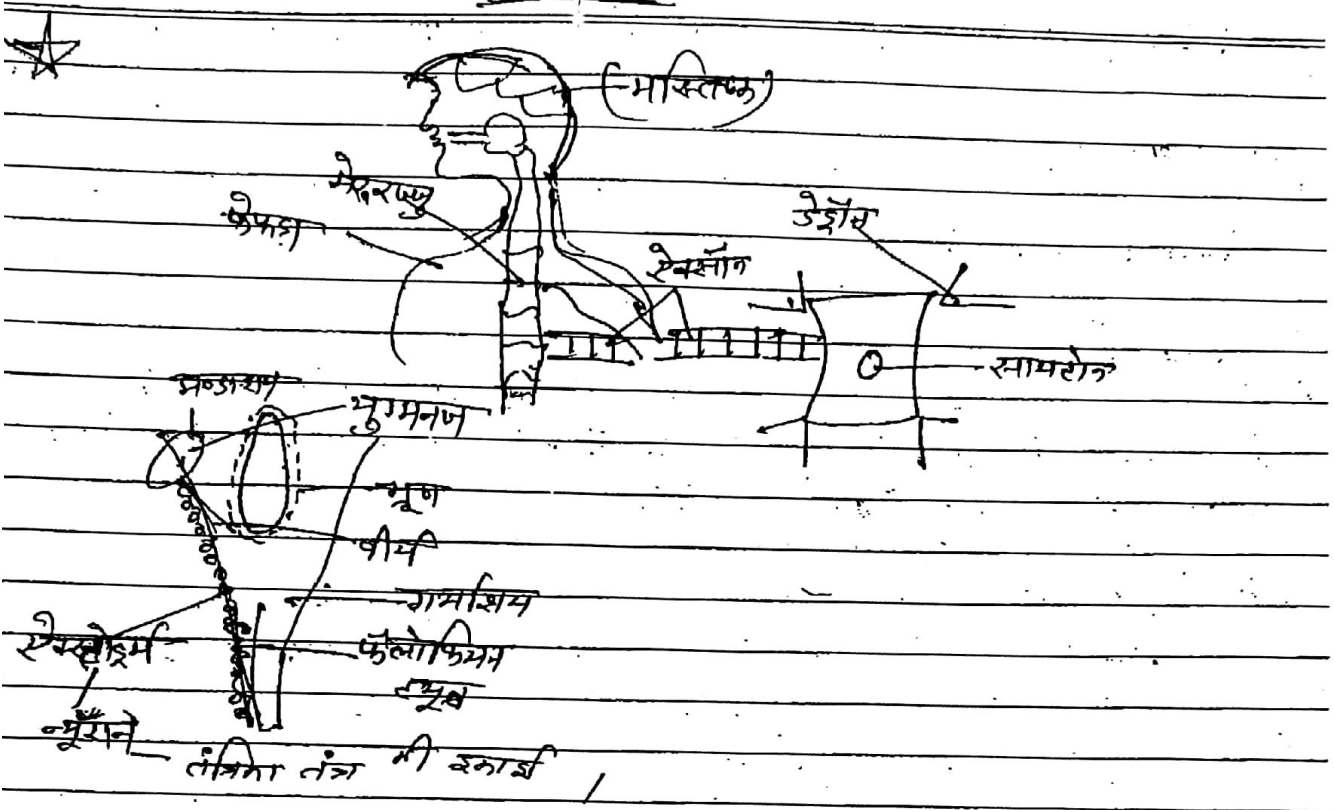 (मस्तिष्क)
मेरुरज्जु
फेफड़ा
डेंड्रॉन
ऐक्सॉन
सायटोन
अण्डाशय
युग्मनज
भ्रूण
वीर्य
गर्भाशय
ऐक्टोडर्म
फैलोपियन
ट्यूब
न्यूरॉन
तंत्रिका तंत्र की इकाई